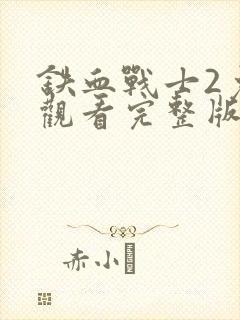 鉄血戰士2
觀看完整版
赤小